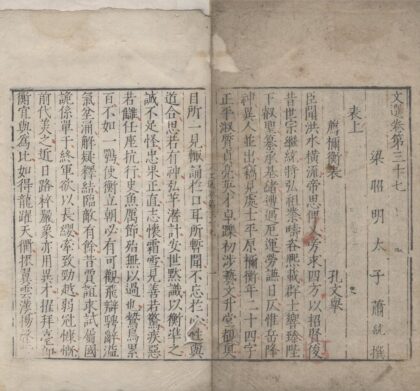 文選卷第三十七
梁昭明太子蕭統撰
表上
薦禰衡表 孔文舉
臣聞洪水橫流帝思俾乂旁求四方以招賢俊
昔世宗繼統將弘祖業疇咨熙載群士響臻陛
下叡聖纂承基緒遭遇厄運勞謙日仄惟岳降
神異人並出竊見處士平原禰衡年二十四字
正平淑質貞亮英才卓躒初涉藝文升堂覩奧
目所一見輒誦於口耳所暫聞不忘於心性與
道合思若有神弘羊潛計安世默識以衡準之
誠不足怪忠果正直志懷霜雪見善若驚疾惡
若讎任座抗行史魚厲節殆無以過也鷙鳥累
百不如一鶚使衡立朝必有可觀飛辯騁辭溢
氣坌涌解疑釋結臨敵有餘昔賈誼求試屬國
詭係單于終軍欲以長纓牽致勁越弱冠慷慨
前代美之近日路粹嚴象亦用異才擢拜臺郎
衡宜與為比如得龍躍天衢振翼雲漢揚